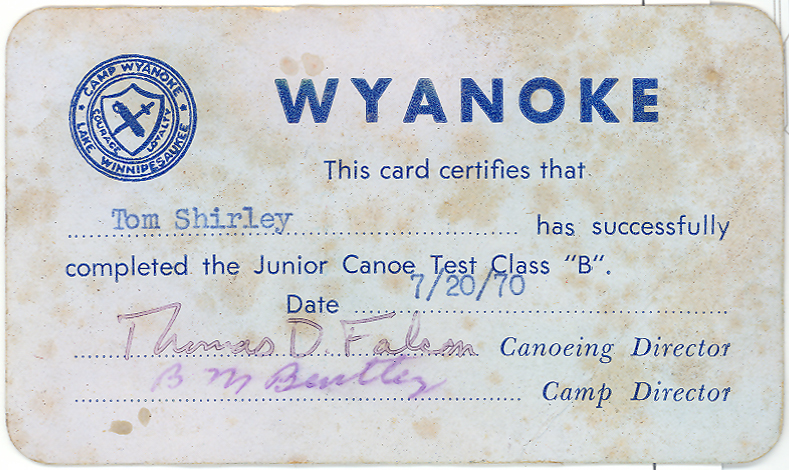 CAMP WYANOKE
COURAGE LOYALTY
LAKE WINNIPESAUKEE
WYANOKE
This card certifies that
Tom Shirley has successfully
completed the Junior Canoe Test Class "B".
Date 7/20/70
Thomas D. Falcon Canoeing Director
B M Bentley Camp Director